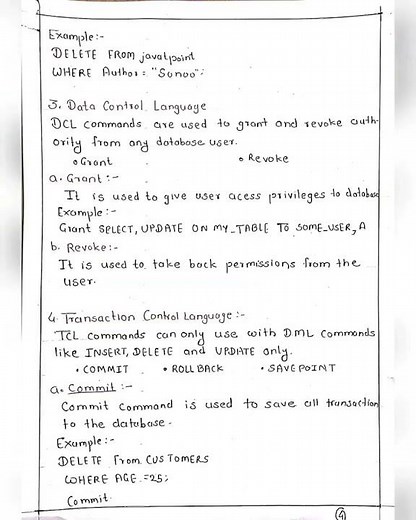 Example:-
DELETE FROM javatpoint
WHERE Author = "Sonoo";
3. Data Control Language
DCL commands are used to grant and revoke auth-
ority from any database user.
o Grant o Revoke
a. Grant :-
It is used to give user acess privileges to database
Example :-
Grant SELECT, UPDATE ON MY_TABLE TO SOME_USER, A
b. Revoke:-
It is used to take back permissions from the
user.
4. Transaction Control Language :-
TCL commands can only use with DML commands
like INSERT, DELETE and UPDATE only.
• COMMIT • ROLL BACK • SAVEPOINT
a. Commit :-
Commit command is used to save all transaction
to the database.
Example:-
DELETE From CUSTOMERS
WHERE AGE =25;
Commit.
4